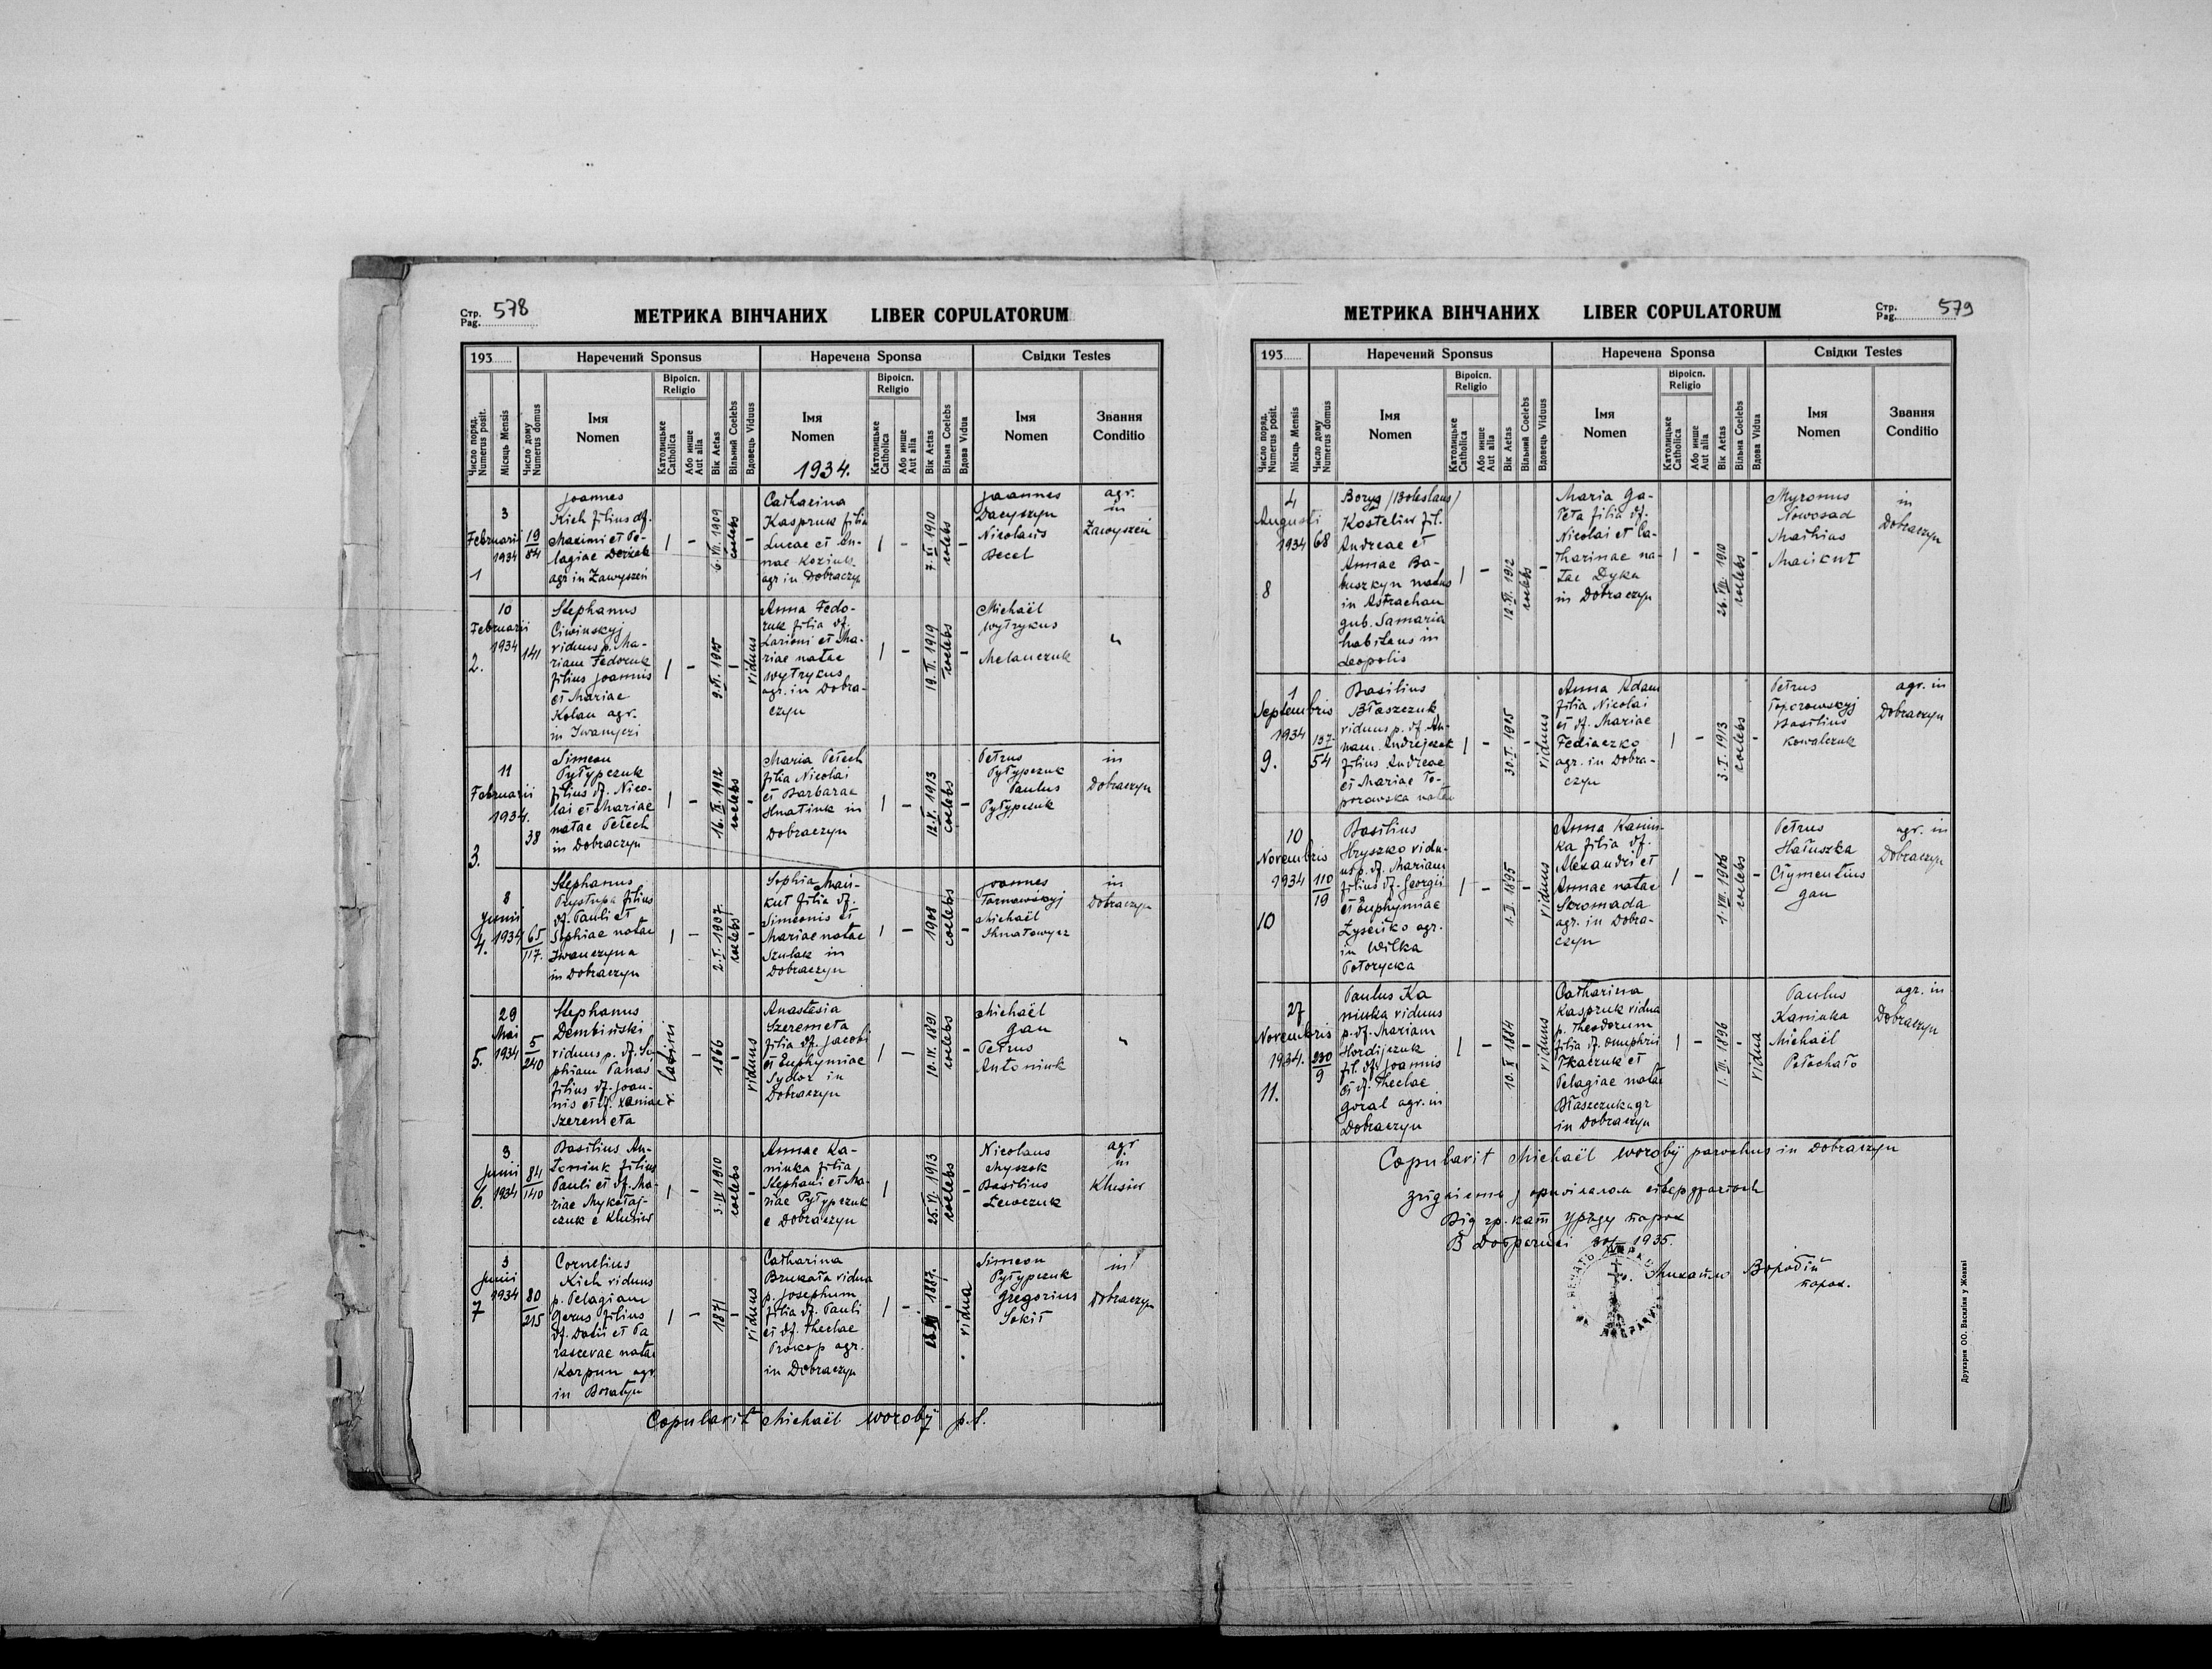 Стр. Pag. 578
МЕТРИКА ВІНЧАНИХ LIBER COPULATORUM
193
Наречений Sponsus
Наречена Sponsa
Свідки Testes
Число поряд. Numerus posit.
Місяць Mensis
Число дому Numerus domus
Імя Nomen
Віроісп. Religio
Католицьке Catholica
Або инше Aut alia
Вік Aetas
Вільний Coelebs
Вдовець Viduus
Імя Nomen
1934.
Віроісп. Religio
Католицьке Catholica
Або инше Aut alia
Вік Aetas
Вільна Coelebs
Вдова Vidua
Імя Nomen
Звання Conditio
3
Februarii
1934
1
19
84
Joannes
Kich filius df.
Maximi et Pe-
lagiae Derżek
agr in Zawyszeń
1
-
6. VII. 1909
coelebs
-
Catharina
Kaspruk filia
Lucae et An-
nae Koziuk
agr in Dobraczyn
1
-
7. XI. 1910
coelebs
-
Joannes
Dacyszyn
Nicolaus
Decel
agr.
in
Zawyszeń
10
Februarii
1934
2.
141
Stephanus
Ciwinskyj
viduus p. Ma-
riam Fedoruk
filius Joannis
et Mariae
Kolan agr.
in Iwanyczi
1
-
9. VI. 1905
-
viduus
Anna Fedo-
ruk filia df.
Larioni et Ma-
riae natae
Wytrykus
agr. in Dobra-
czyn
1
-
19. VI. 1919
coelebs
-
Michaël
Wytrykus
Melanczuk
"
11
Februarii
1934.
3.
38
Simeon
Pyłypczuk
filius df. Nico-
lai et Mariae
natae Petech
in Dobraczyn
1
-
16. IX. 1912
coelebs
-
Maria Petech
filia Nicolai
et Barbarae
Hnatiuk in
Dobraczyn
1
-
12. X. 1913
coelebs
-
Petrus
Pyłypczuk
Paulus
Pyłypczuk
in
Dobraczyn
8
Junii
1934
4.
65
117.
Stephanus
Prystupa filius
df. Pauli et
Sophiae natae
Iwanczyna
in Dobraczyn
1
-
2. I. 1907.
coelebs
-
Sophia Mań-
kut filia df.
Simeonis et
Mariae natae
Szulak in
Dobraczyn
1
-
1908
coelebs
-
Joannes
Tarnawskyj
Michaël
Ihnatowycz
in
Dobraczyn
29
Mai
1934
5.
5
240
Stephanus
Dembiński
viduus p. df. So-
phiam Panas
filius df. Joan-
nis et df. Xaniae
Szeremeta
r. latini
-
1866
-
viduus
Anastasia
Szeremeta
filia df. Jacobi
et Euphymiae
Sydor in
Dobraczyn
1
-
10. IV. 1891
coelebs
-
Michaël
Gan
Petrus
Antoniuk
"
3
Junii
1934
6.
84
140
Basilius An-
toniuk filius
Pauli et df. Ma-
riae Mykołaj-
czuk e Klusiw
1
-
3. IV 1910
coelebs
-
Annae Ka-
ninka filia
Stephani et Ma-
riae Pyłypczuk
e Dobraczyn
1
25. VI. 1913
coelebs
-
Nicolaus
Myszok
Basilius
Lewczuk
agr
in
Klusiw
3
Junii
1934
7
80
215
Cornelius
Kich viduus
p. Pelagiam
Gerus filius
df. Dosii et Pa
rascevae natae
Karpun agr
in Boratyn
1
-
1871
-
viduus
Catharina
Brukała vidua
p. Josephum
filia df. Pauli
et df. Theclae
Prokop agr.
in Dobraczyn
1
-
1887.
-
vidua
Simeon
Pyłypczuk
Gregorius
Sokił
in
Dobraczyn
Copulavit Michaël Worobij p. l.
МЕТРИКА ВІНЧАНИХ LIBER COPULATORUM
Стр. Pag. 579
193
Наречений Sponsus
Наречена Sponsa
Свідки Testes
Число поряд. Numerus posit.
Місяць Mensis
Число дому Numerus domus
Імя Nomen
Віроісп. Religio
Католицьке Catholica
Або инше Aut alia
Вік Aetas
Вільний Coelebs
Вдовець Viduus
Імя Nomen
Віроісп. Religio
Католицьке Catholica
Або инше Aut alia
Вік Aetas
Вільна Coelebs
Вдова Vidua
Імя Nomen
Звання Conditio
4
Augusti
1934
8
68
Borys /Boleslaus/
Kosteliw fil.
Andreae et
Annae Ba-
buszkyn natus
in Astrachan
gub. Samaria
habitans in
Leopolis
1
-
12. VI. 1912
coelebs
-
Maria Ga-
Peta filia df.
Nicolai et Ca-
tharinae na-
tae Dyka
in Dobraczyn
1
-
26. VII. 1910
coelebs
-
Myronus
Nowosad
Mathias
Mańkut
in
Dobraczyn
1
Septembris
1934
9.
137
54
Basilius
Błaszczuk
viduus p. df. An-
nam Andrejczuk
filius Andreae
et Mariae To-
porowska natae
1
-
30. I. 1905
-
viduus
Anna Adam
filia Nicolai
et df. Mariae
Fediaczko
agr. in Dobra-
czyn
1
-
3. I. 1913
coelebs
-
Petrus
Toporowskyj
Basilius
Kowalczuk
agr. in
Dobraczyn
10
Novembris
1934
10
110
19
Basilius
Hryszko vidu-
us p. df. Mariam
filius df. Georgii
et Euphymiae
Łyseńko agr.
in Wilka
Potorycka
1
-
1. II. 1895
-
viduus
Anna Kanin-
ka filia df.
Alexandri et
Annae natae
Skromada
agr. in Dobra-
czyn
1
-
1. VIII. 1906
coelebs
-
Petrus
Hałuszka
Clymentius
Gan
agr. in
Dobraczyn
27
Novembris
1934.
11.
230
9
Paulus Ka
ninka viduus
p. df. Mariam
Hordijczuk
fil. df. Joannis
et df. Theclae
Goral agr. in
Dobraczyn
1
-
10. X 1884
-
viduus
Catharina
Kaspruk vidua
p. Theodorum
filia df. Onuphrii
Tkaczuk et
Pelagiae natae
Błaszczuk agr
in Dobraczyn
1
-
1. III. 1896
-
vidua
Paulus
Kaninka
Michaël
Potochało
agr. in
Dobraczyn
Copulavit Michaël Worobij parochus in Dobraczyn
Від гр. кат. Уряду парох
В Добрачині 1935.
о. Михайло Воробій
парох.
Друкарня ОО. Василіян у Жовкві